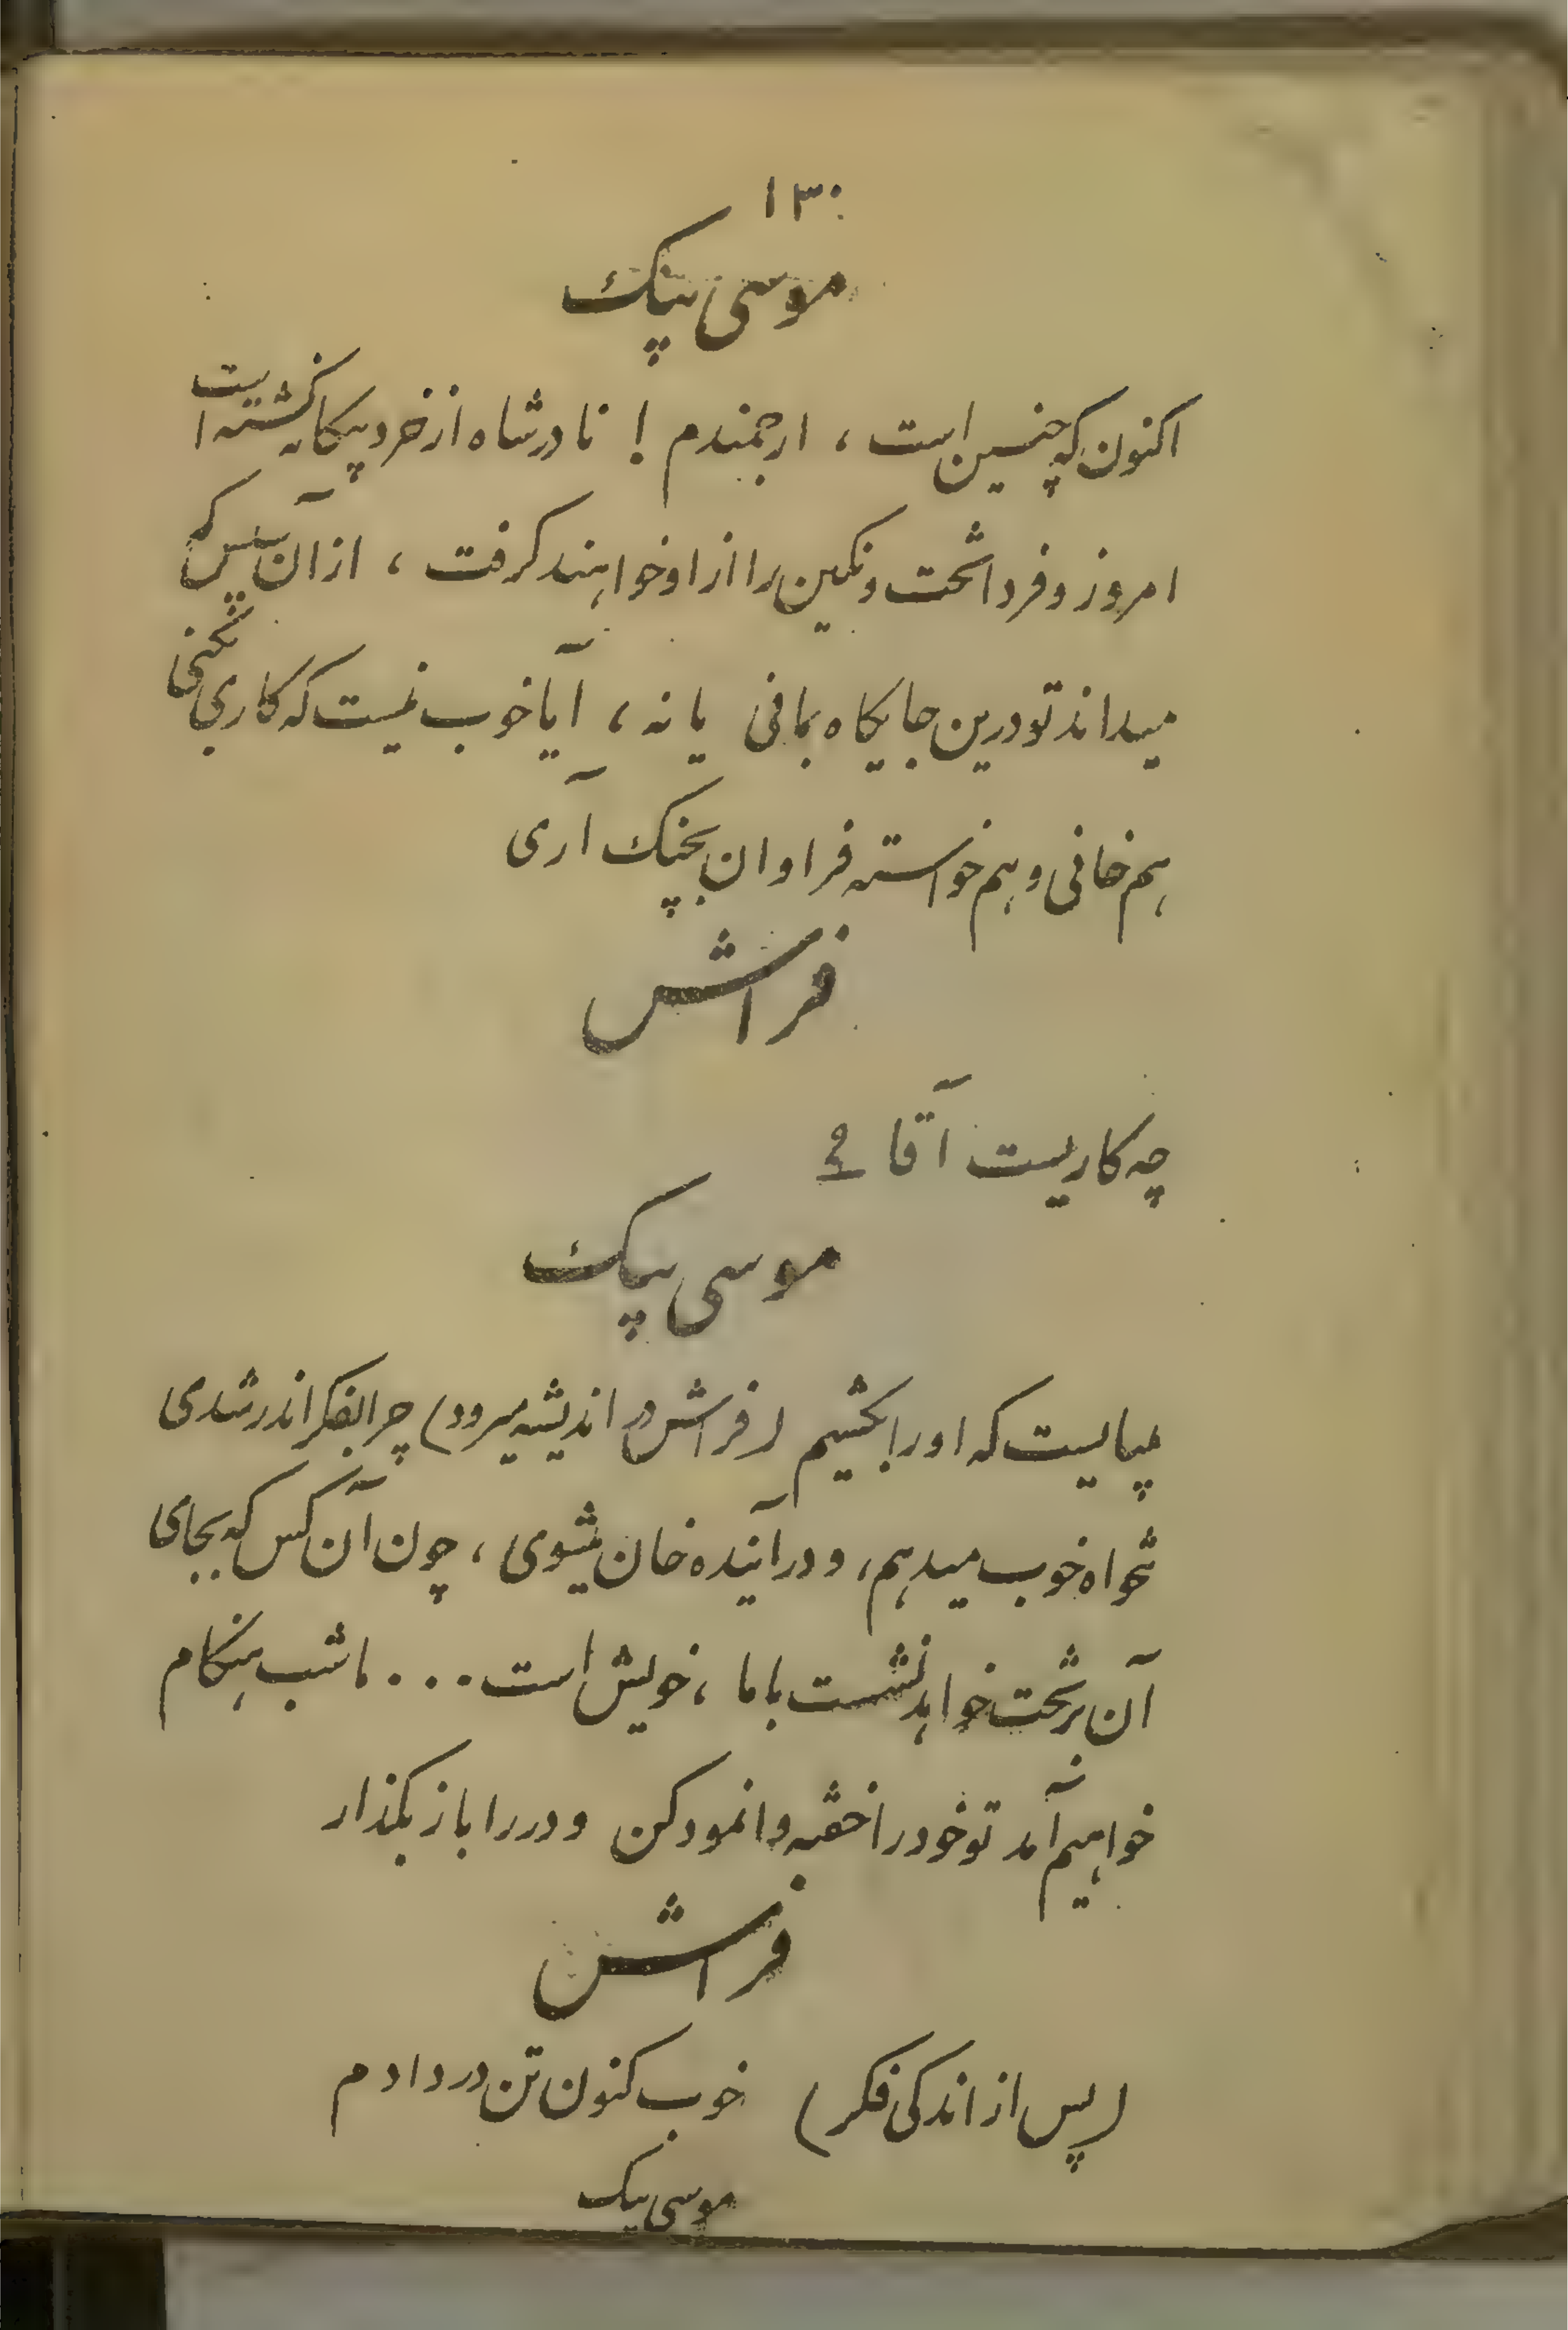 ١٣٠
موسی بیک
اکنون که چنین است ، ارجمندم ! نادرشاه از خرد بیکانه کشته است
امروز و فردا تخت و نکین را از او خواهند کرفت ، از آن پس که
میداند تو درین جایکاه بمانی یا نه ، آیا خوب نیست که کاری بکنی
هم خانی و هم خواسته فراوان بچنک آری
فراش
چه کاریست آقا ؟
موسی بیک
میبایست که او را بکشیم (فراش در اندیشه میرود) چرا بفکر اندر شدی
تنخواه خوب میدهم، و در آینده خان میشوی ، چون آن کس که بجای
آن بر تخت خواهد نشست با ما ، خویش است ... ما شب هنکام
خواهیم آمد تو خود را خفته وانمود کن و در را باز بکذار
فراش
(پس از اندکی فکر) خوب کنون تن در دادم
موسی بیک